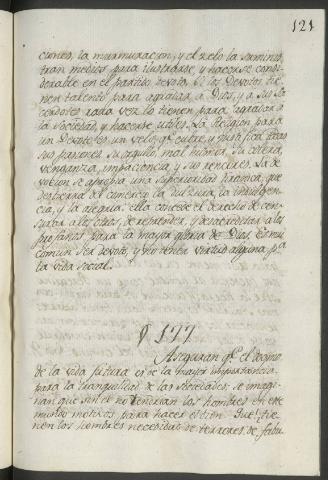 121
ciones, la murmuracion, y el zelo la suminis
tran medios para ilustrarse, y hacerse consi
derable en el partido devoto. Si los Devotos tie
nen talento para agradar a Dios, y a sus Sa
cerdotes rara vez lo tienen para agradar a
la Sociedad, y hacerse utiles. La Religion para
un Devoto es un velo, qe cubre, y justifica todas
sus pasiones su orgullo, mal humor, su colera
venganza, impaciencia, y sus rencores. La de
vocion se apropia una superioridad tiranica, que
destierra del comercio la dulzura, la indulgen
cia, y la alegria. ella concede el derecho de cen
surar a los otros, de reprender, y desacreditar a los
profanos para la mayor gloria de Dios. Es muy
comun ser devoto, y no tener virtud alguna pa
la vida social.
§ 177
Aseguran qe el dogma
de la vida futura es de la mayor importancia
para la tranquilidad de las Sociedades. se imagi
nan que sin el no tendrian los hombres en este
mundo motivos para hacer el bien. Que! tie
nen los hombres necesidad de terrores, de fabu